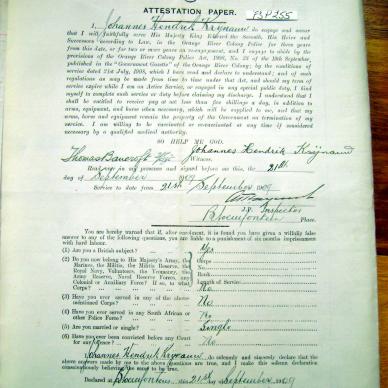 ATTESTATION PAPER.
PSP 255
I, Johannes Hendrik Kĳnauw do engage and swear
that I will faithfully serve His Majesty King Edward the Seventh, His Heirs and
Successors according to Law, in the Orange River Colony Police for three years
from this date, or for two or more years on re-engagement, and I engage to abide by the
provisions of the Orange River Colony Police Act, 1908, No. 23 of the 18th September,
published in the "Government Gazette" of the Orange River Colony; by the conditions
of service dated 21st July, 1908, which I have read and declare to understand; and of such
regulations as may be made from time to time under that Act, and should my term of
service expire while I am on Active Service, or engaged in any special duty, I bind
myself to complete such service or duty before claiming my discharge. I understand that I
shall be entitled to receive pay at not less than five shillings a day, in addition to
arms, equipment, and horse when necessary, which will be supplied to me, and that my
arms, horse and equipment remain the property of the Government on termination of my
service. I am willing to be vaccinated or re-vaccinated at any time if considered
necessary by a qualified medical authority.
SO HELP ME GOD.
Johannes Hendrik
Thomas Bancroft Witness.
Read over in my presence and signed before me this, the 21st
day of September 1909
Service to date from 21st September 1909
J.P. Inspector
Bloemfontein Place.
You are hereby warned that if, after enrolment, it is found you have given a wilfully false
answer to any of the following questions, you are liable to a punishment of six months imprisonment
with hard labour.
(1) Are you a British subject? Yes
(2) Do you now belong to His Majesty's Army, the
Marines, the Militia, the Militia Reserve, the
Royal Navy, Volunteers, the Yeomanry, the
Army Reserve, Naval Reserve Forces, any
Colonial or Auxiliary Force? If so, to what
Corps?
Corps No
No.
Rank
Length of Service
No
(3) Have you ever served in any of the above-
mentioned Corps? No
(4) Have you ever served in any South African or
other Police Force? No
(5) Are you married or single? Single
(6) Have you ever been convicted by any Court
for any offence? No
I, Johannes Hendrik do solemnly and sincerely declare that the
above answers made by me to the above questions are true, and I make this solemn declaration
conscientiously believing the same to be true.
Declared at Bloemfontein this 21st day of September 1909